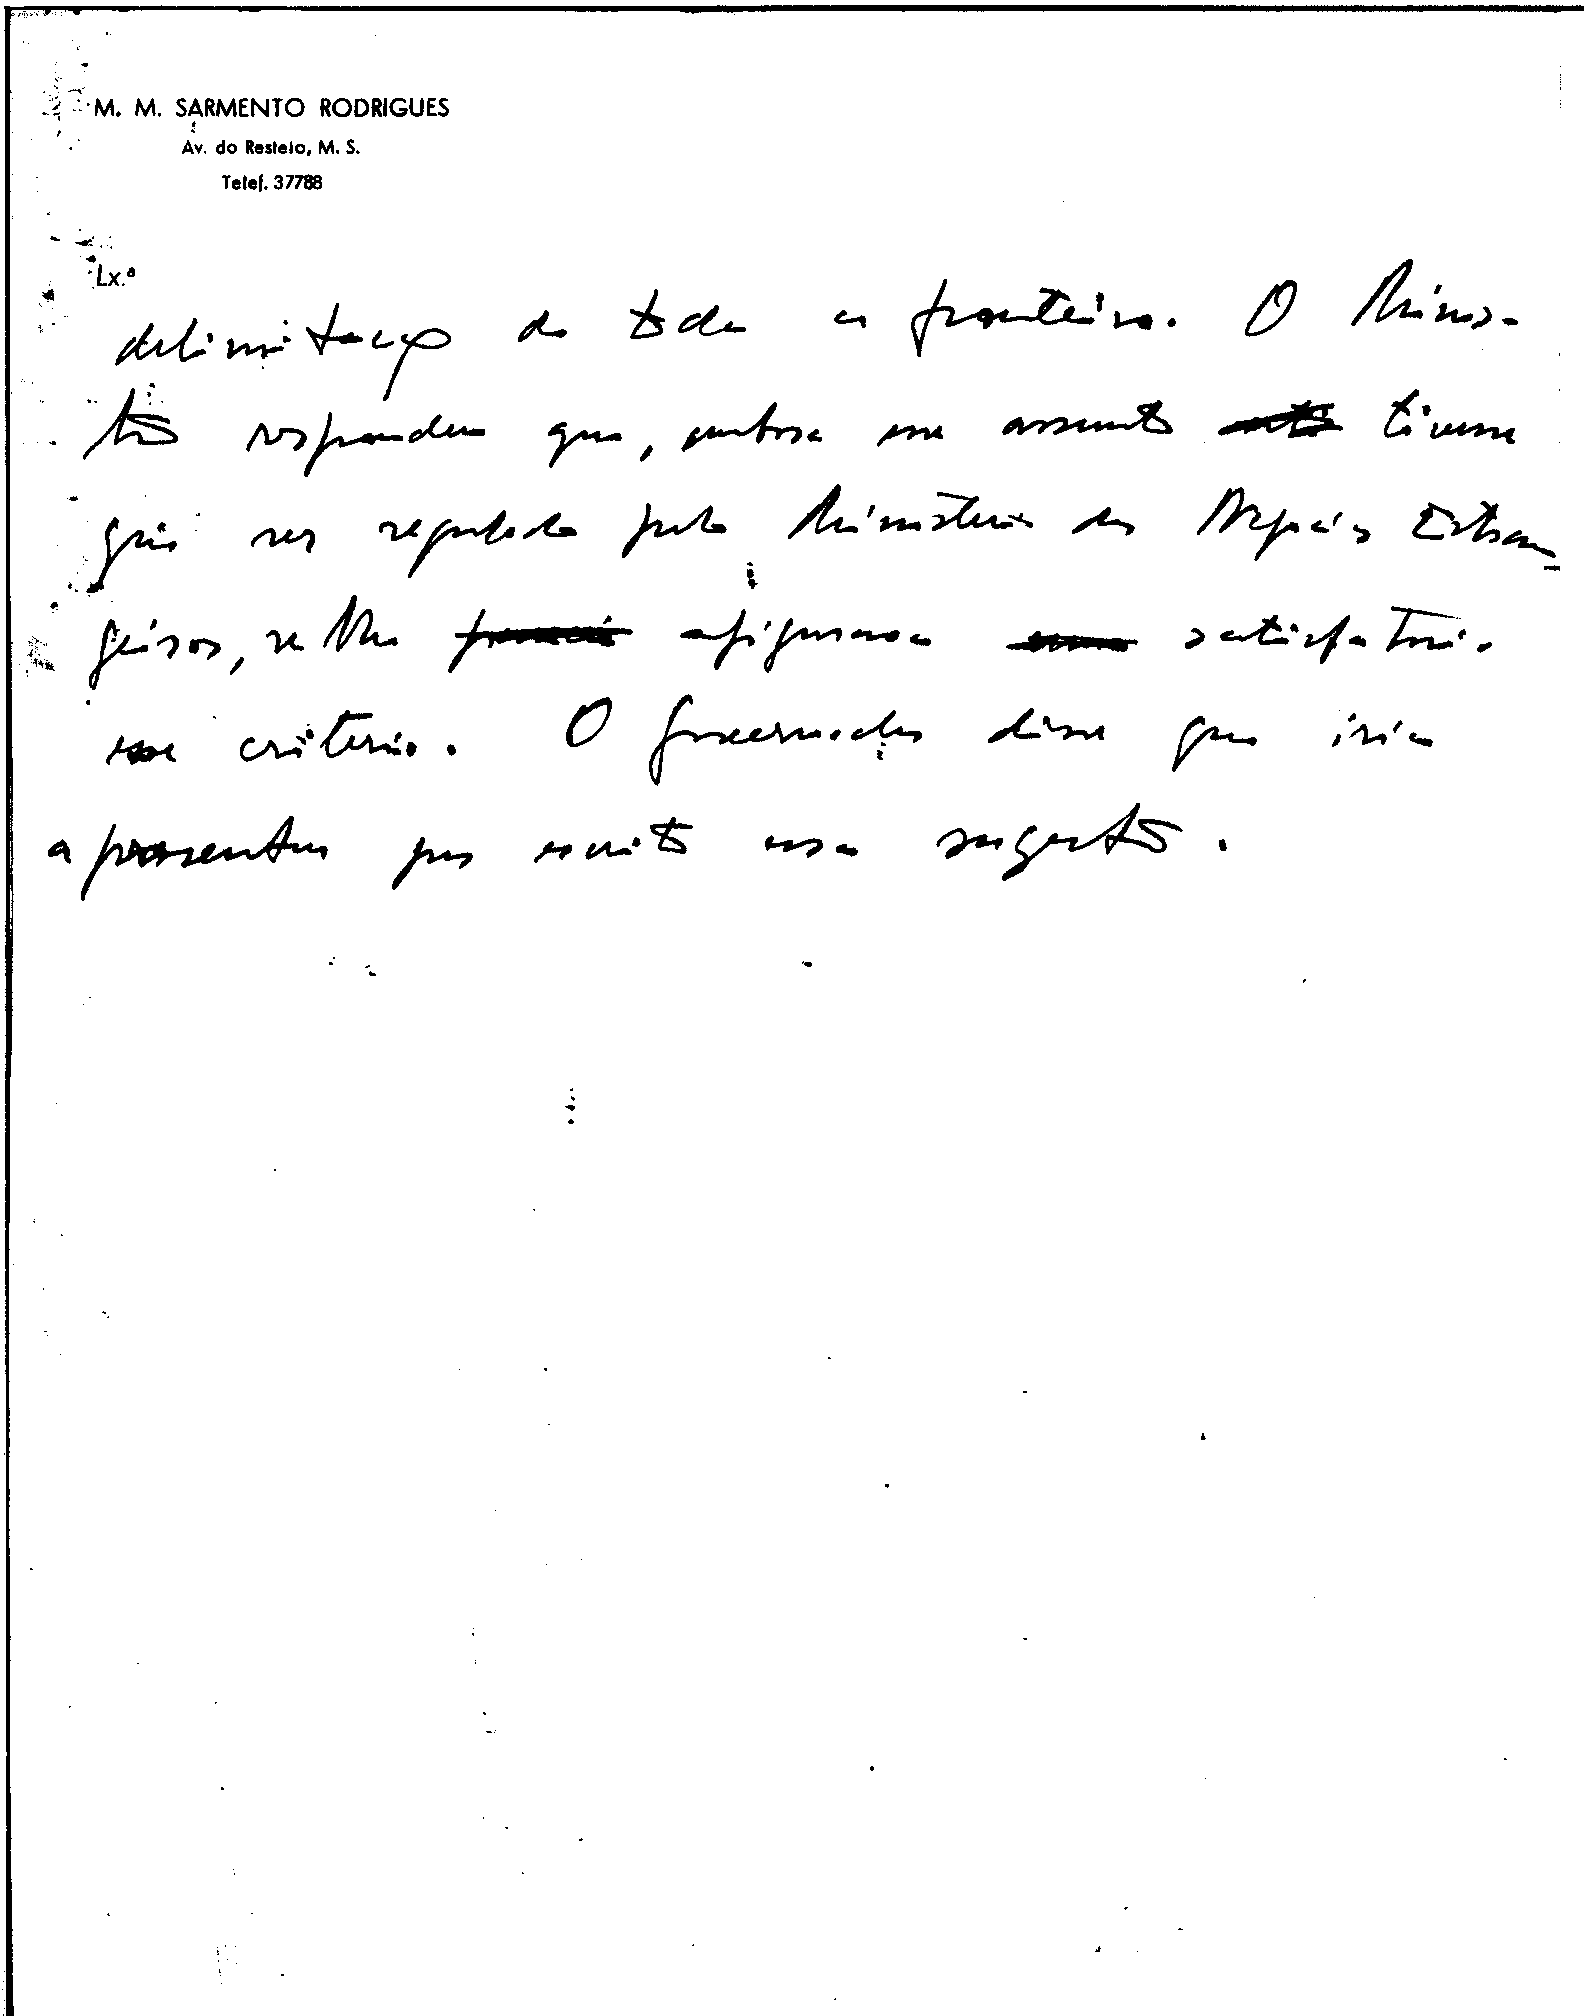 M. M. SARMENTO RODRIGUES
Av. do Restelo, M. S.
Telef. 37788
Lx.ª
delimitação de toda a fronteira. O Minis-
tro respondeu que, embora esse assunto tivesse
que ser regulado pelo Ministério dos Negócios Estran-
geiros, se lhe afigurava satisfatório
esse critério. O Governador disse que iria
apresentar por escrito essa sugestão.